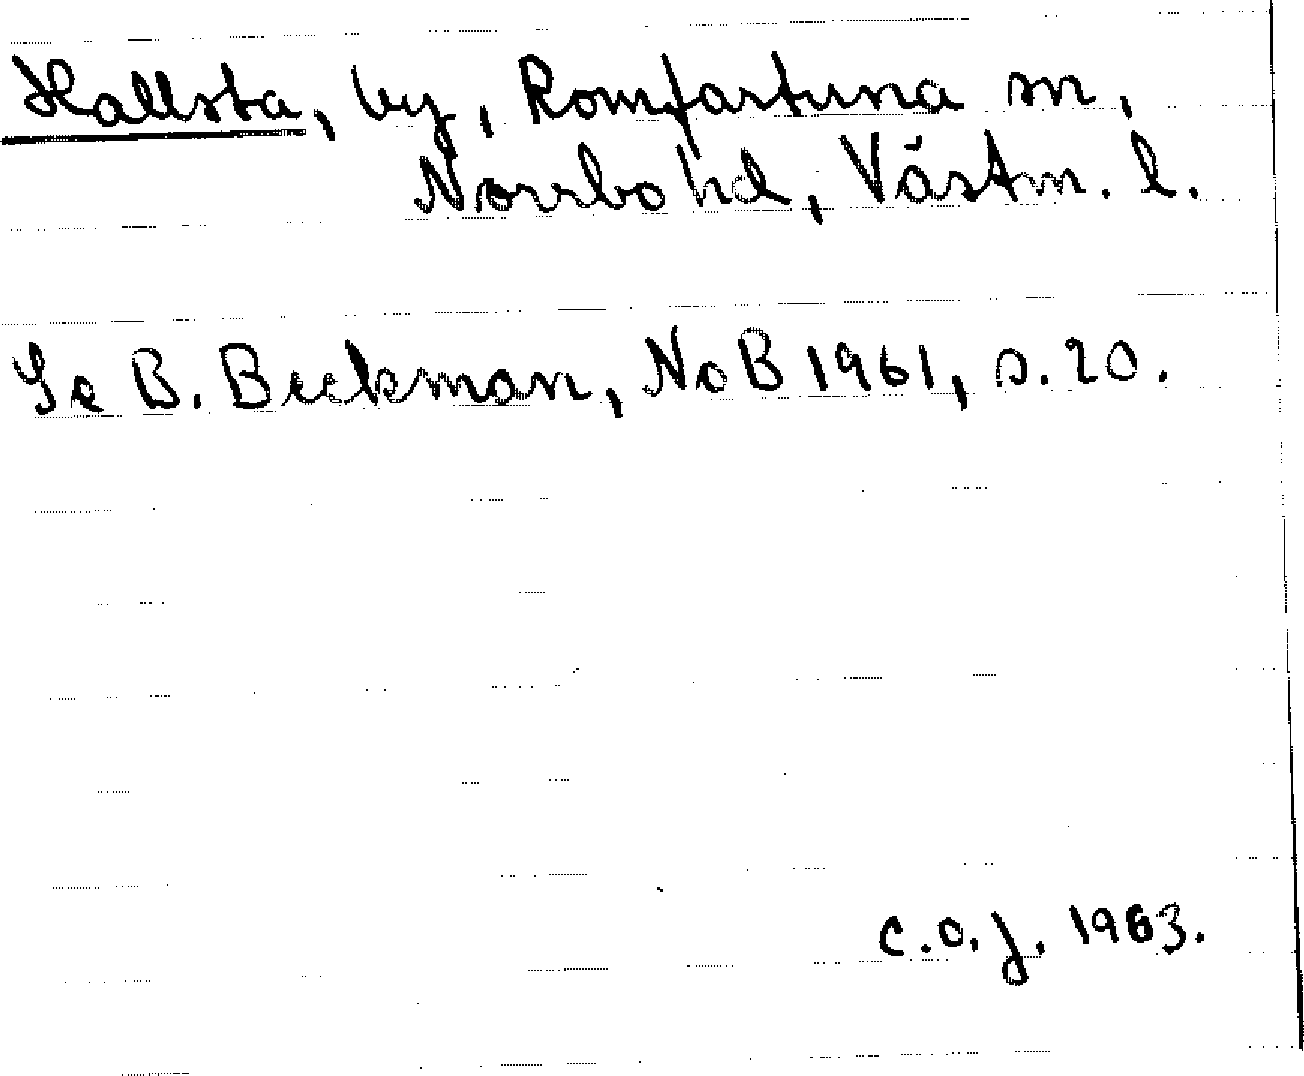 Hallsta, by, Romfartuna sn,
Norrbo hd, Västm. l.
Se B. Beckman, NoB 1961, s. 20.
C.O.J. 1963.